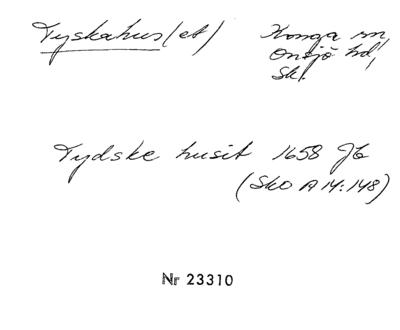 Tyskahus(et) Konga sn,
Onsjö hd,
Sk.
Tydske husit 1658 Jb
(SkO A 14:148)
Nr 23310